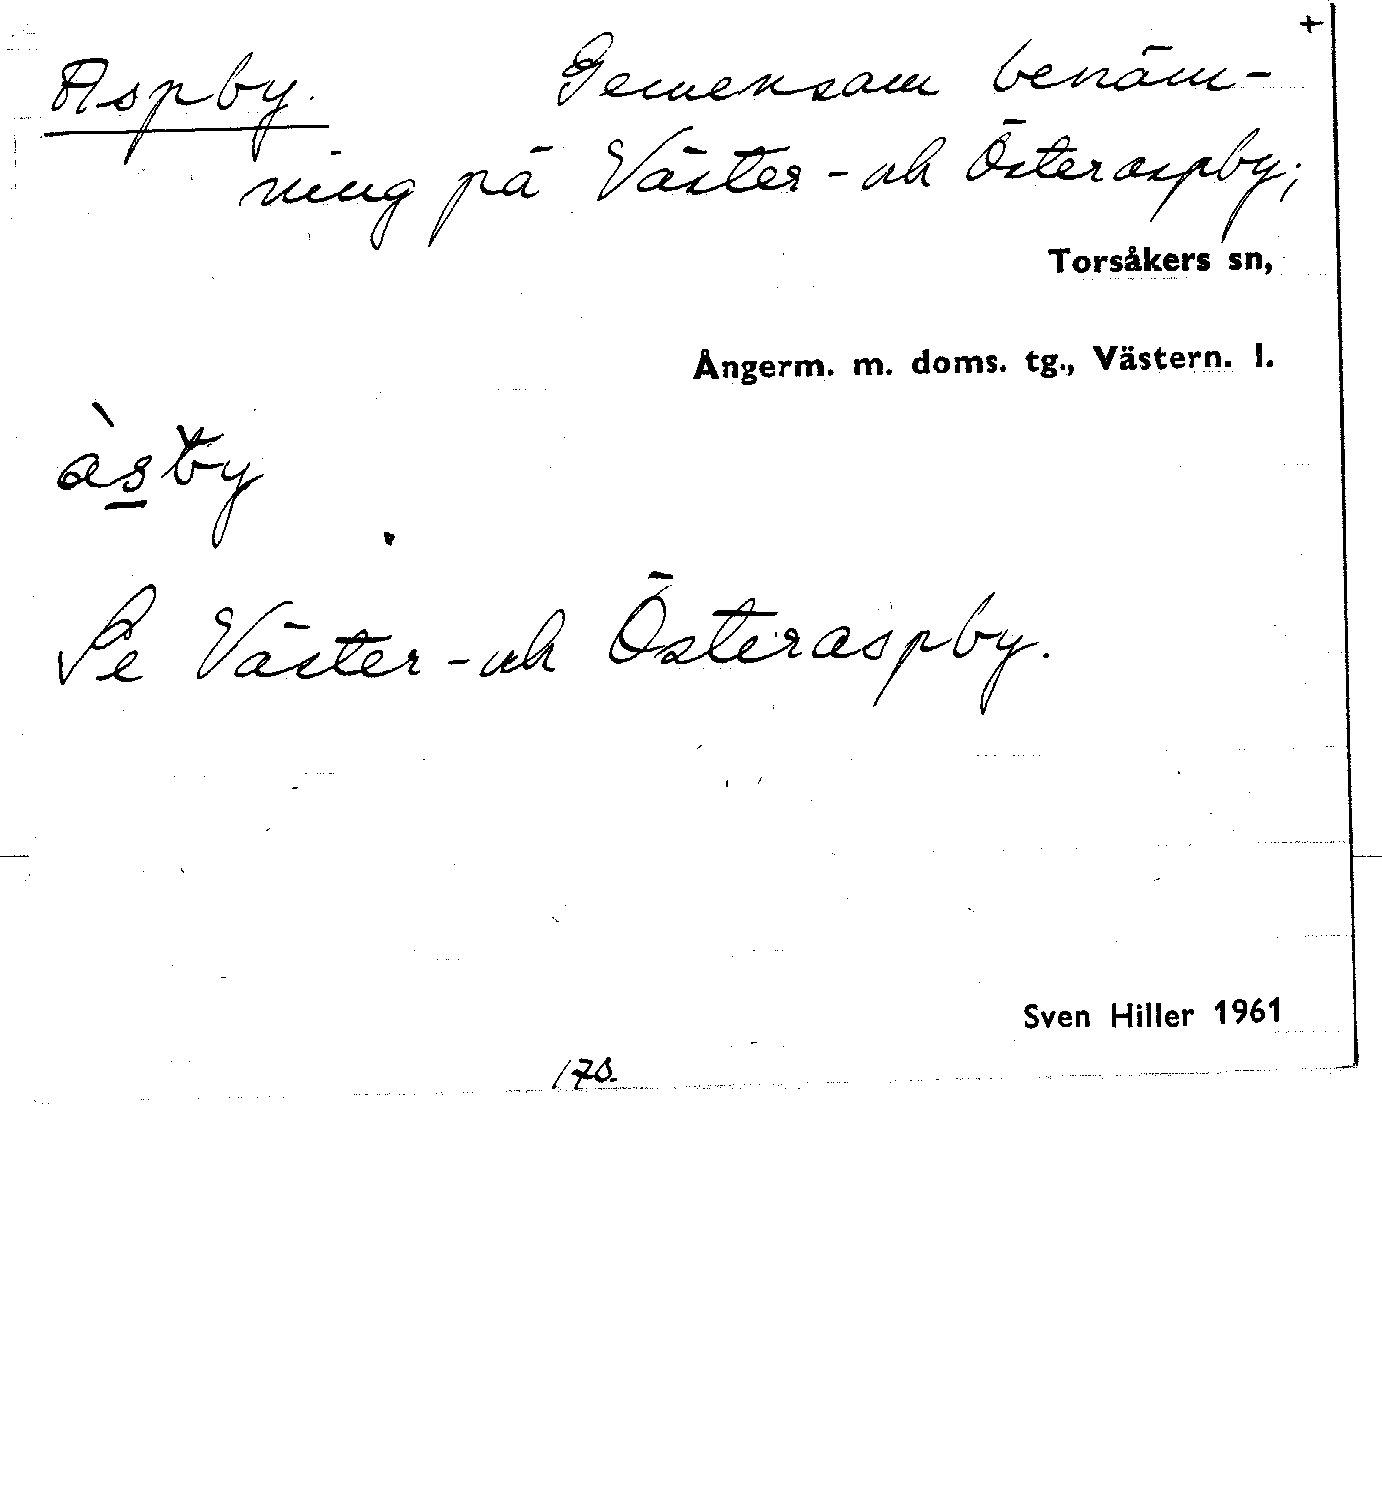 +
Aspby. Gemensam benäm-
ning på Väster- och Österaspby;
Torsåkers sn,
Ångerm. m. doms. tg., Västern. l.
àsby
Se Väster- och Österaspby.
Sven Hiller 1961
170.